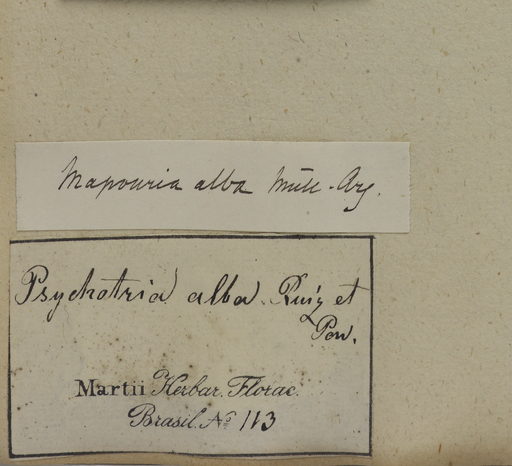 Mapouria alba Müll-Arg.
Psychotria alba Ruiz et
Pav.
Martii Herbar. Florae
Brasil. No 113